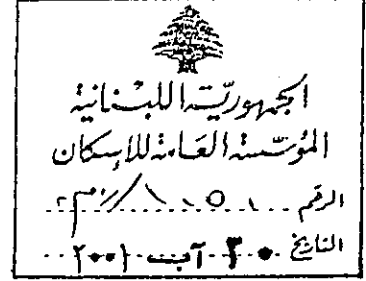 الجمهورية اللبنانية
المؤسسة العامة للإسكان
الرقم
التاريخ ٣٠ آب ٢٠٠١